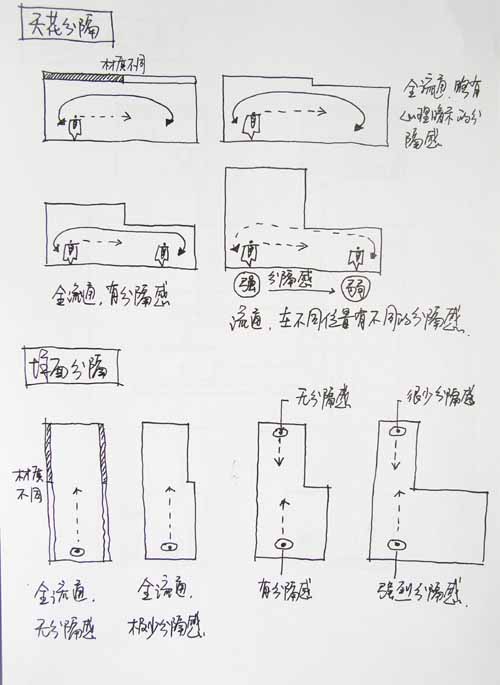 天花分隔
材质不同
全流通,略有
心理暗示的分
隔感
全流通,有分隔感
强 分隔感 弱
流通,在不同位置有不同的分隔感.
墙面分隔
无分隔感
很少分隔感
材质
不同
全流通.
无分隔感
全流通.
极少分隔感.
有分隔感
强烈分隔感.